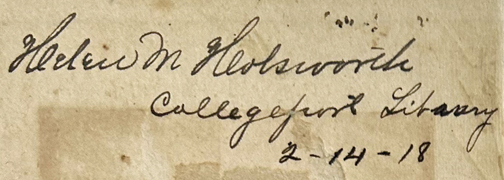 Helen M Holsworth
Collegeport Library
2-14-18